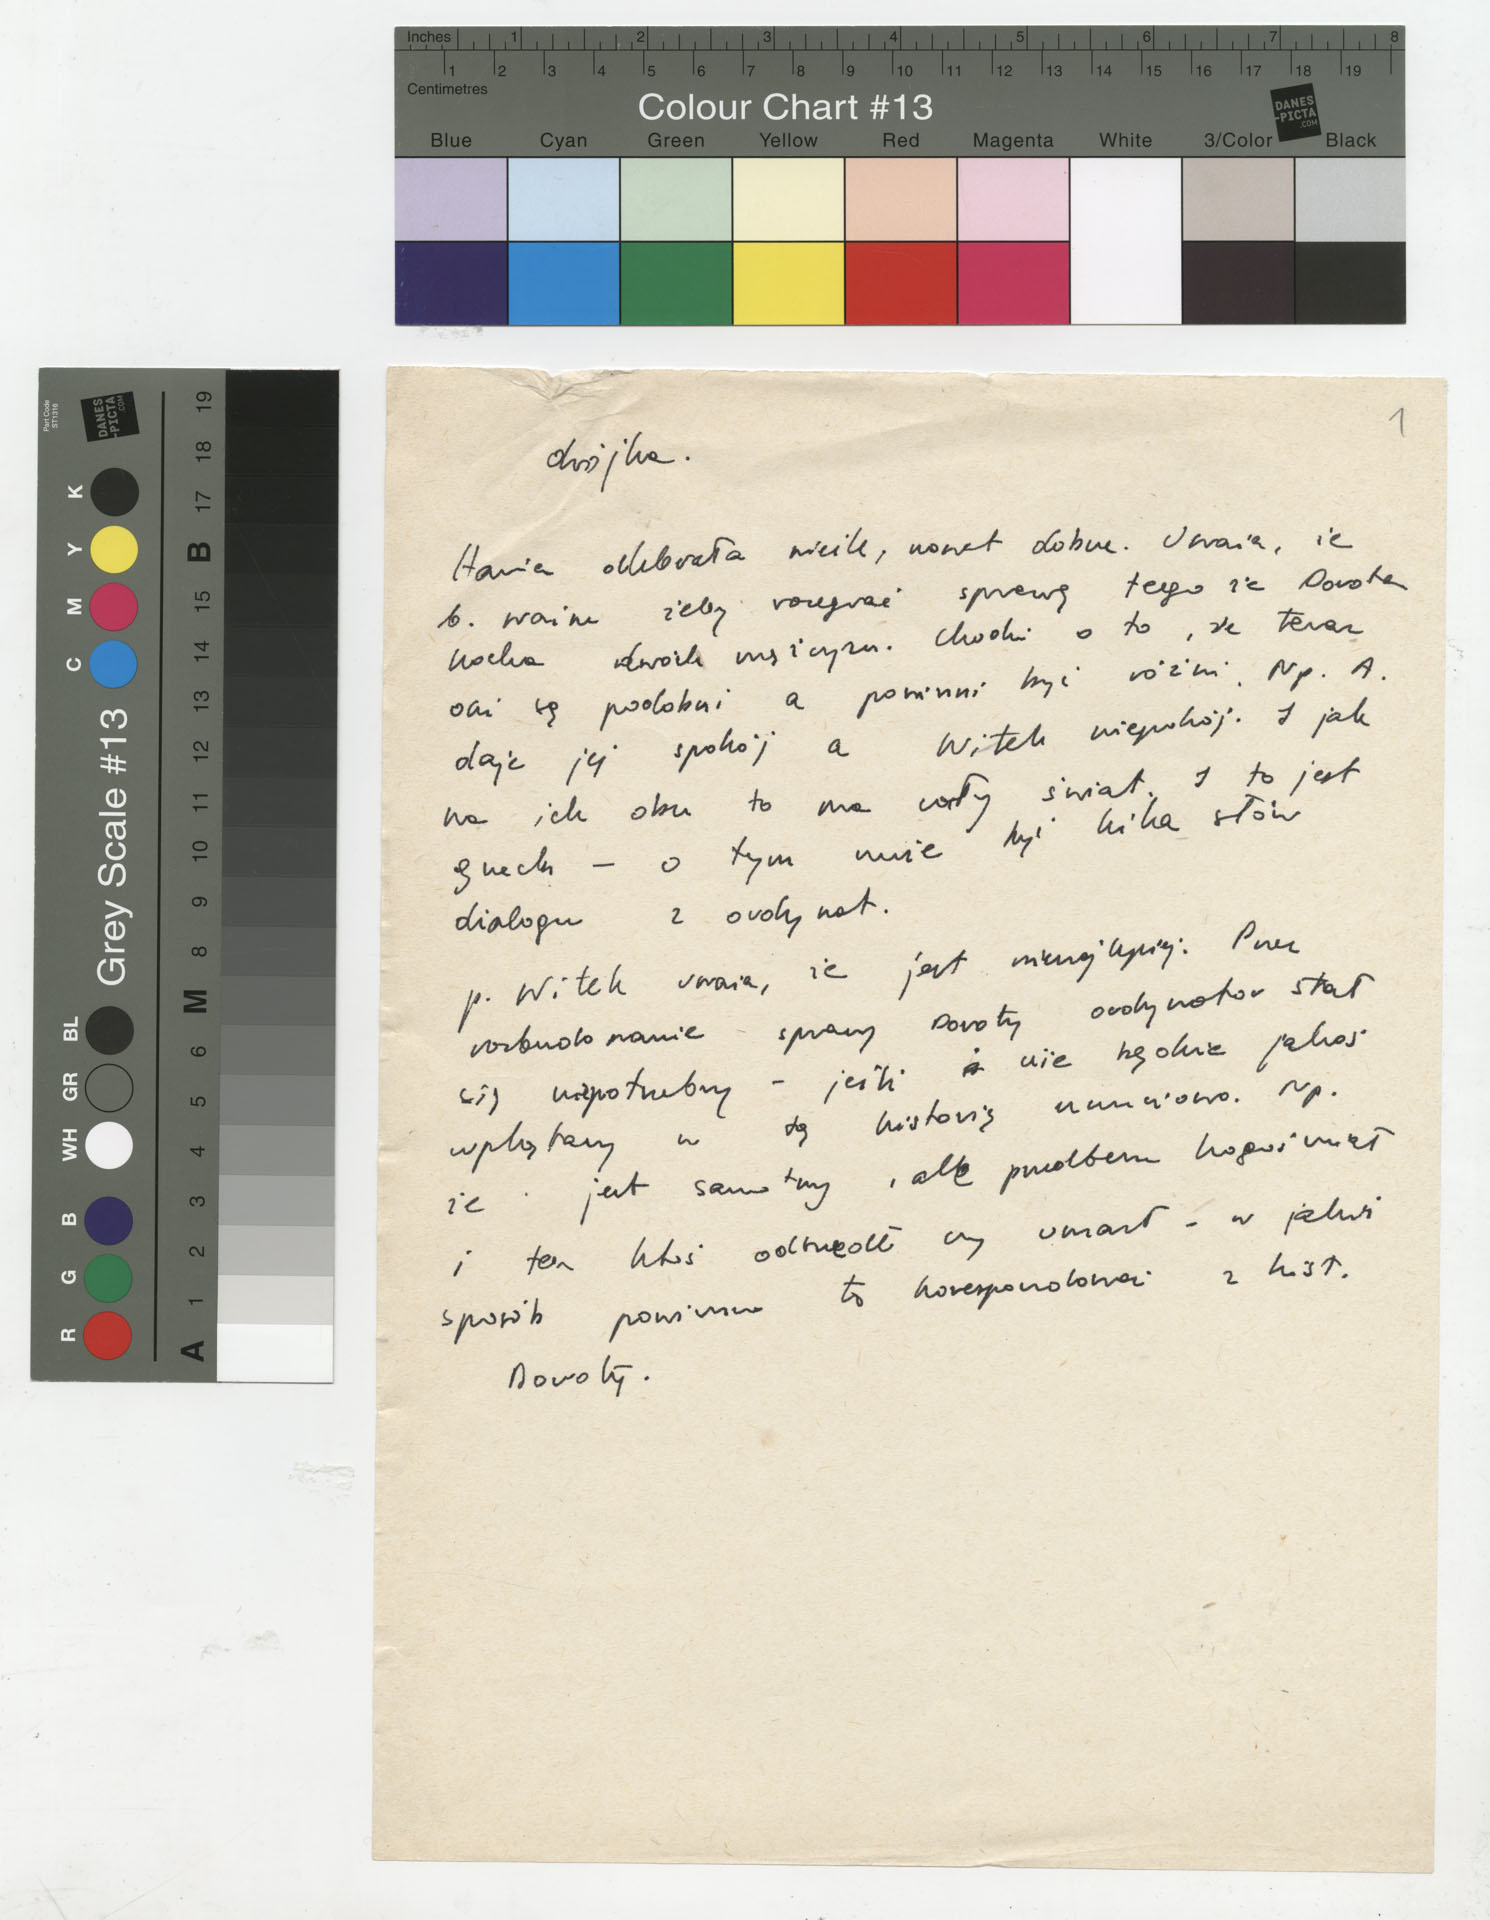 Inches 1 2 3 4 5 6 7 8
1 2 3 4 5 6 7 8 9 10 11 12 13 14 15 16 17 18 19
Centimetres
Colour Chart #13
DANES
-PICTA
.COM
Blue Cyan Green Yellow Red Magenta White 3/Color Black
Part Code
ST1316
DANES
-PICTA
.COM
Grey Scale #13
K Y M C
BL GR WH B G R
19 18 17 B 15 14 13 12 11 10 9 8 M 6 5 4 3 2 1 A
1
dwójka.
Hania odebrała nieźle, nawet dobrze. Uważa, że
b. ważne żeby rozegrać sprawę tego że Dorota
kocha dwóch mężczyzn. Chodzi o to, że teraz
oni są podobni a powinni być różni. Np. A.
daje jej spokój a Witek niepokój. I jak
ma ich obu to ma cały świat. I to jest
grzech – o tym może być kilka słów
dialogu z ordynat.
p. Witek uważa, że jest nienajlepiej. Przez
rozbudowanie sprawy Doroty ordynator stał
się niepotrzebny – jeśli nie będzie jakoś
wplątany w tę historię emocjonal. Np.
że jest samotny, ale przedtem kogoś miał
i ten ktoś odszedł czy umarł – w jakiś
sposób powinno to korespondować z hist.
Doroty.